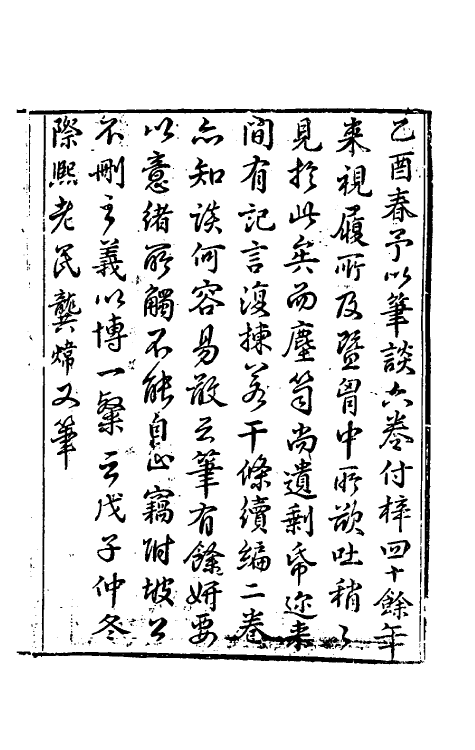 乙酉春予以筆談六卷付梓四十餘年
來視履所及暨胷中所欲吐稍〻
見於此矣而塵笥尚遺剩帋邇來
間有記言復揀若干條續編二卷
亦知談何容易敢云筆有餘妍要
以意緒所觸不能自止竊附坡公
不刪之義以博一粲云戊子仲冬
際熙老民龔煒又筆